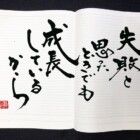 失敗と
思った
ときでも
成長
している
から